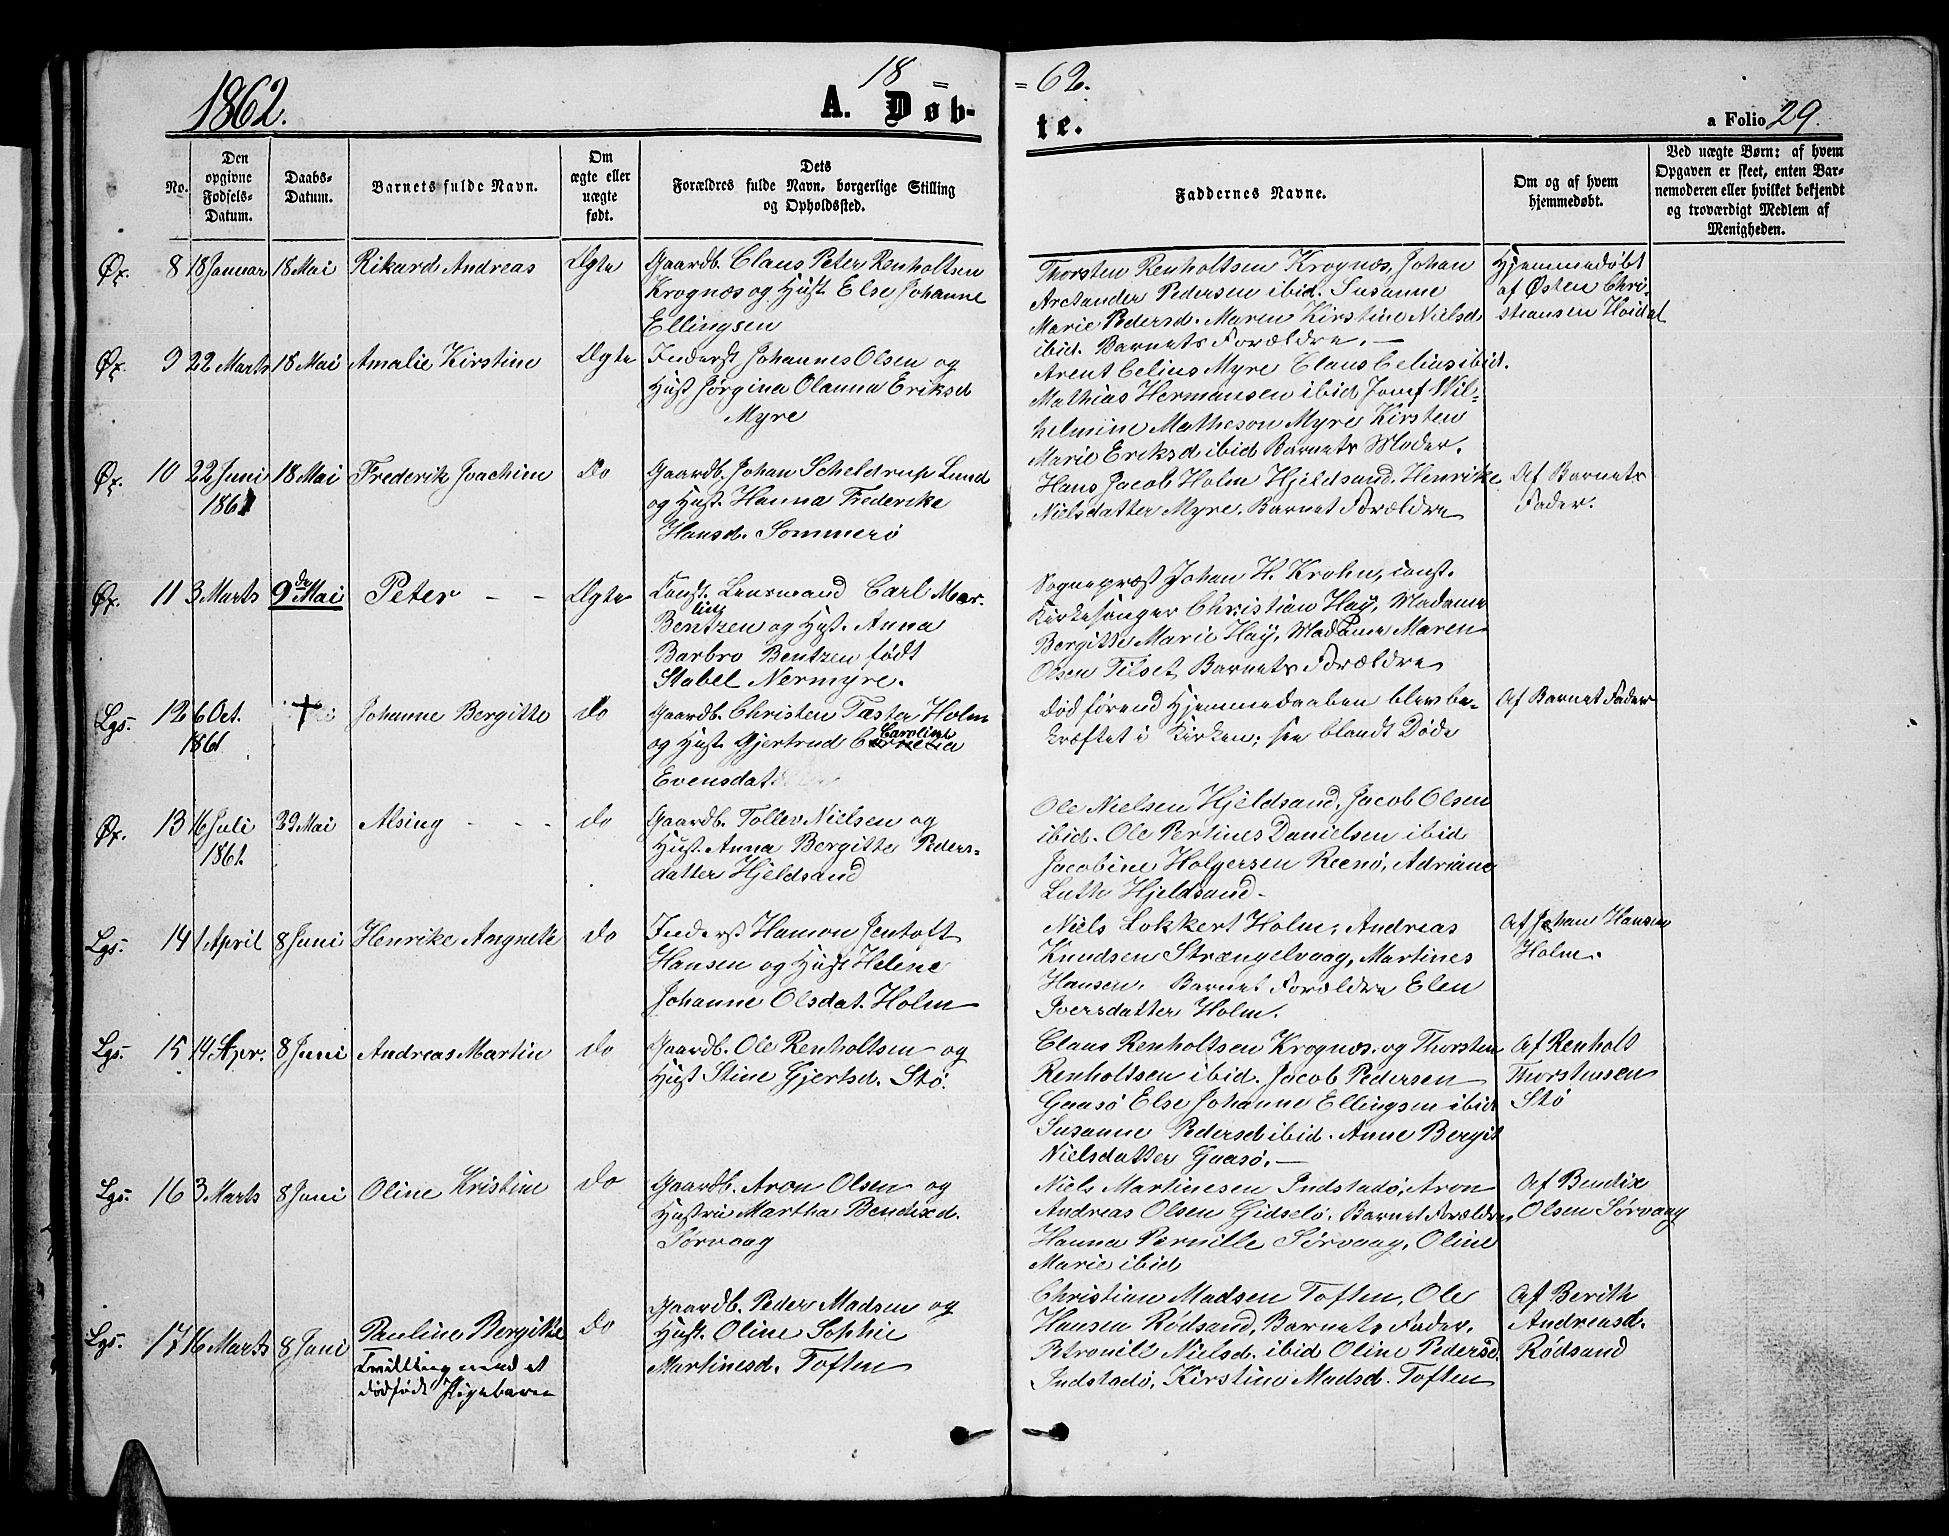 1862.
18 = = 62.
A. Døb-
te.
a Folio 29.
No.
Den
opgivne
Fødsels-
Datum.
Daabs-
Datum.
Barnets fulde Navn.
Om
ægte eller
uægte
født.
Dets
Forældres fulde Navn, borgerlige Stilling
og Opholdssted.
Faddernes Navne.
Om og af hvem
hjemmedøbt.
Ved uægte Børn: af hvem
Opgaven er skeet, enten Bar-
nemoderen eller hvilket bekjendt
og troværdigt Medlem af
Menigheden.
Øx. 8 18 Januar 18 Mai Rikard Andreas Ægte
Gaardb. Claus Peter Renholtsen
Krognæs og Hust. Else Johanne
Ellingsen
Thorsten Renholtsen Krognæs, Johan
Arctander Pedersen ibid. Susanne
Marie Pedersd. Maren Kirstine Nielsd.
ibid. Barnets Forældre. —
Hjemmedøbt
af Østen Chri-
stiansen Hoidal
Øx. 9 22 Marts 18 Mai Amalie Kirstine Ægte
Inderst Johannes Olsen og
Hust Jørgina Olanna Eriksd
Myre
Arent Celius Myre Claus Celius ibid.
Mathias Hermansen ibid Josef Wil-
helmine Matheson Myre Kirsten
Marie Eriksd ibid Barnets Moder.
Øx. 10 22 Juni 18 Mai Frederik Joachim Do
1861
Gaardb. Johan Scheldrup Lund
og Hust. Hanna Frederike
Hansd. Sommerø
Hans Jacob Holm Hjeldsand, Henrike
Nielsdatter Myre. Barnet Forældre
Af Barnets
Fader.
Øx. 11 3 Marts 9de Mai Peter - - Ægte
Const. Lensmand Carl Mar-
tinz
Bentzen og Hust. Anna
Barbro Bentzen født
Stabel Nermyre.
Sognepræst Johan H. Krohn, const.
Kirkesanger Christian Haÿ, Madame
Bergitte Marie Haÿ, Madame Maren
Olsen Tilset, Barnets Forældre
Lgs. 12 6 Oct. † Johanne Bergitte do
1861
Gaardb. Christen Taster Holm
og Hust. Gjertrud Caroline
Evensdat
død førend Hjemmedaaben blev be-
kræftet i Kirken; see blandt Døde
Af Barnet Fader
Øx. 13 16 Juli 29 Mai Alsing - - - do
1861
Gaardb. Tollev Nielsen og
Hust. Anna Bergitte Peders-
datter Hjeldsand
Ole Nielsen Hjeldsand, Jacob Olsen
ibid. Ole Pertines Danielsen ibid
Jacobine Holgersen Reenø, Adriane
Luth Hjeldsand -
Lgs. 14 1 April 8 Juni Henrike Angnete do
Inderst Hamon Jentoft
Hansen og Hust Heline
Johanne Olsdat. Holm
Niels Lokkert Holm, Andreas
Knudsen Strængelvaag, Martines
Hansen. Barnet Forældre Elen
Iversdatter Holm.
Af Johan Hansen
Holm.
Lgs. 15 14 Apr. 8 Juni Andreas Martin do
Gaardb. Ole Renholtsen og
Hust Stine Gjertsd. Stø.
Claus Renholtsen Krognæs, og Thorsten
Renholtsen ibid. Jacob Pedersen
Gaasø Else Johanne Ellingsen ibid
Susanne Pedersd ibid. Anne Bergit
Nielsdatter Gaasø. —
Af Renholt
Thorstensen
Stø
Lgs. 16 3 Marts 8 Juni Oline Kristine do
Gaardb. Aron Olsen og
Hustru Martha Bendixd.
Sørvaag
Niels Martinesen Indstadø, Aron
Andreas Olsen Gidselø. Barnet Forældre,
Hanna Pernille Sørvaag, Oline
Marie ibid
Af Bendix
Olsen Sørvaag
Lgs. 17 16 Marts 8 Juni Pauline Bergitte do
Tvilling med et
dødfødt Pigebarn
Gaardb. Peder Madsen og
Hust. Oline Sophie
Martinesd. Toften
Christian Madsen Toften, Ole
Hansen Rødsand, Barnets Fader,
Petronill Nielsd. ibid Oline Pedersd.
Indstadø, Kirstine Madsd. Toften
Af Berith
Andreasd.
Rødsand